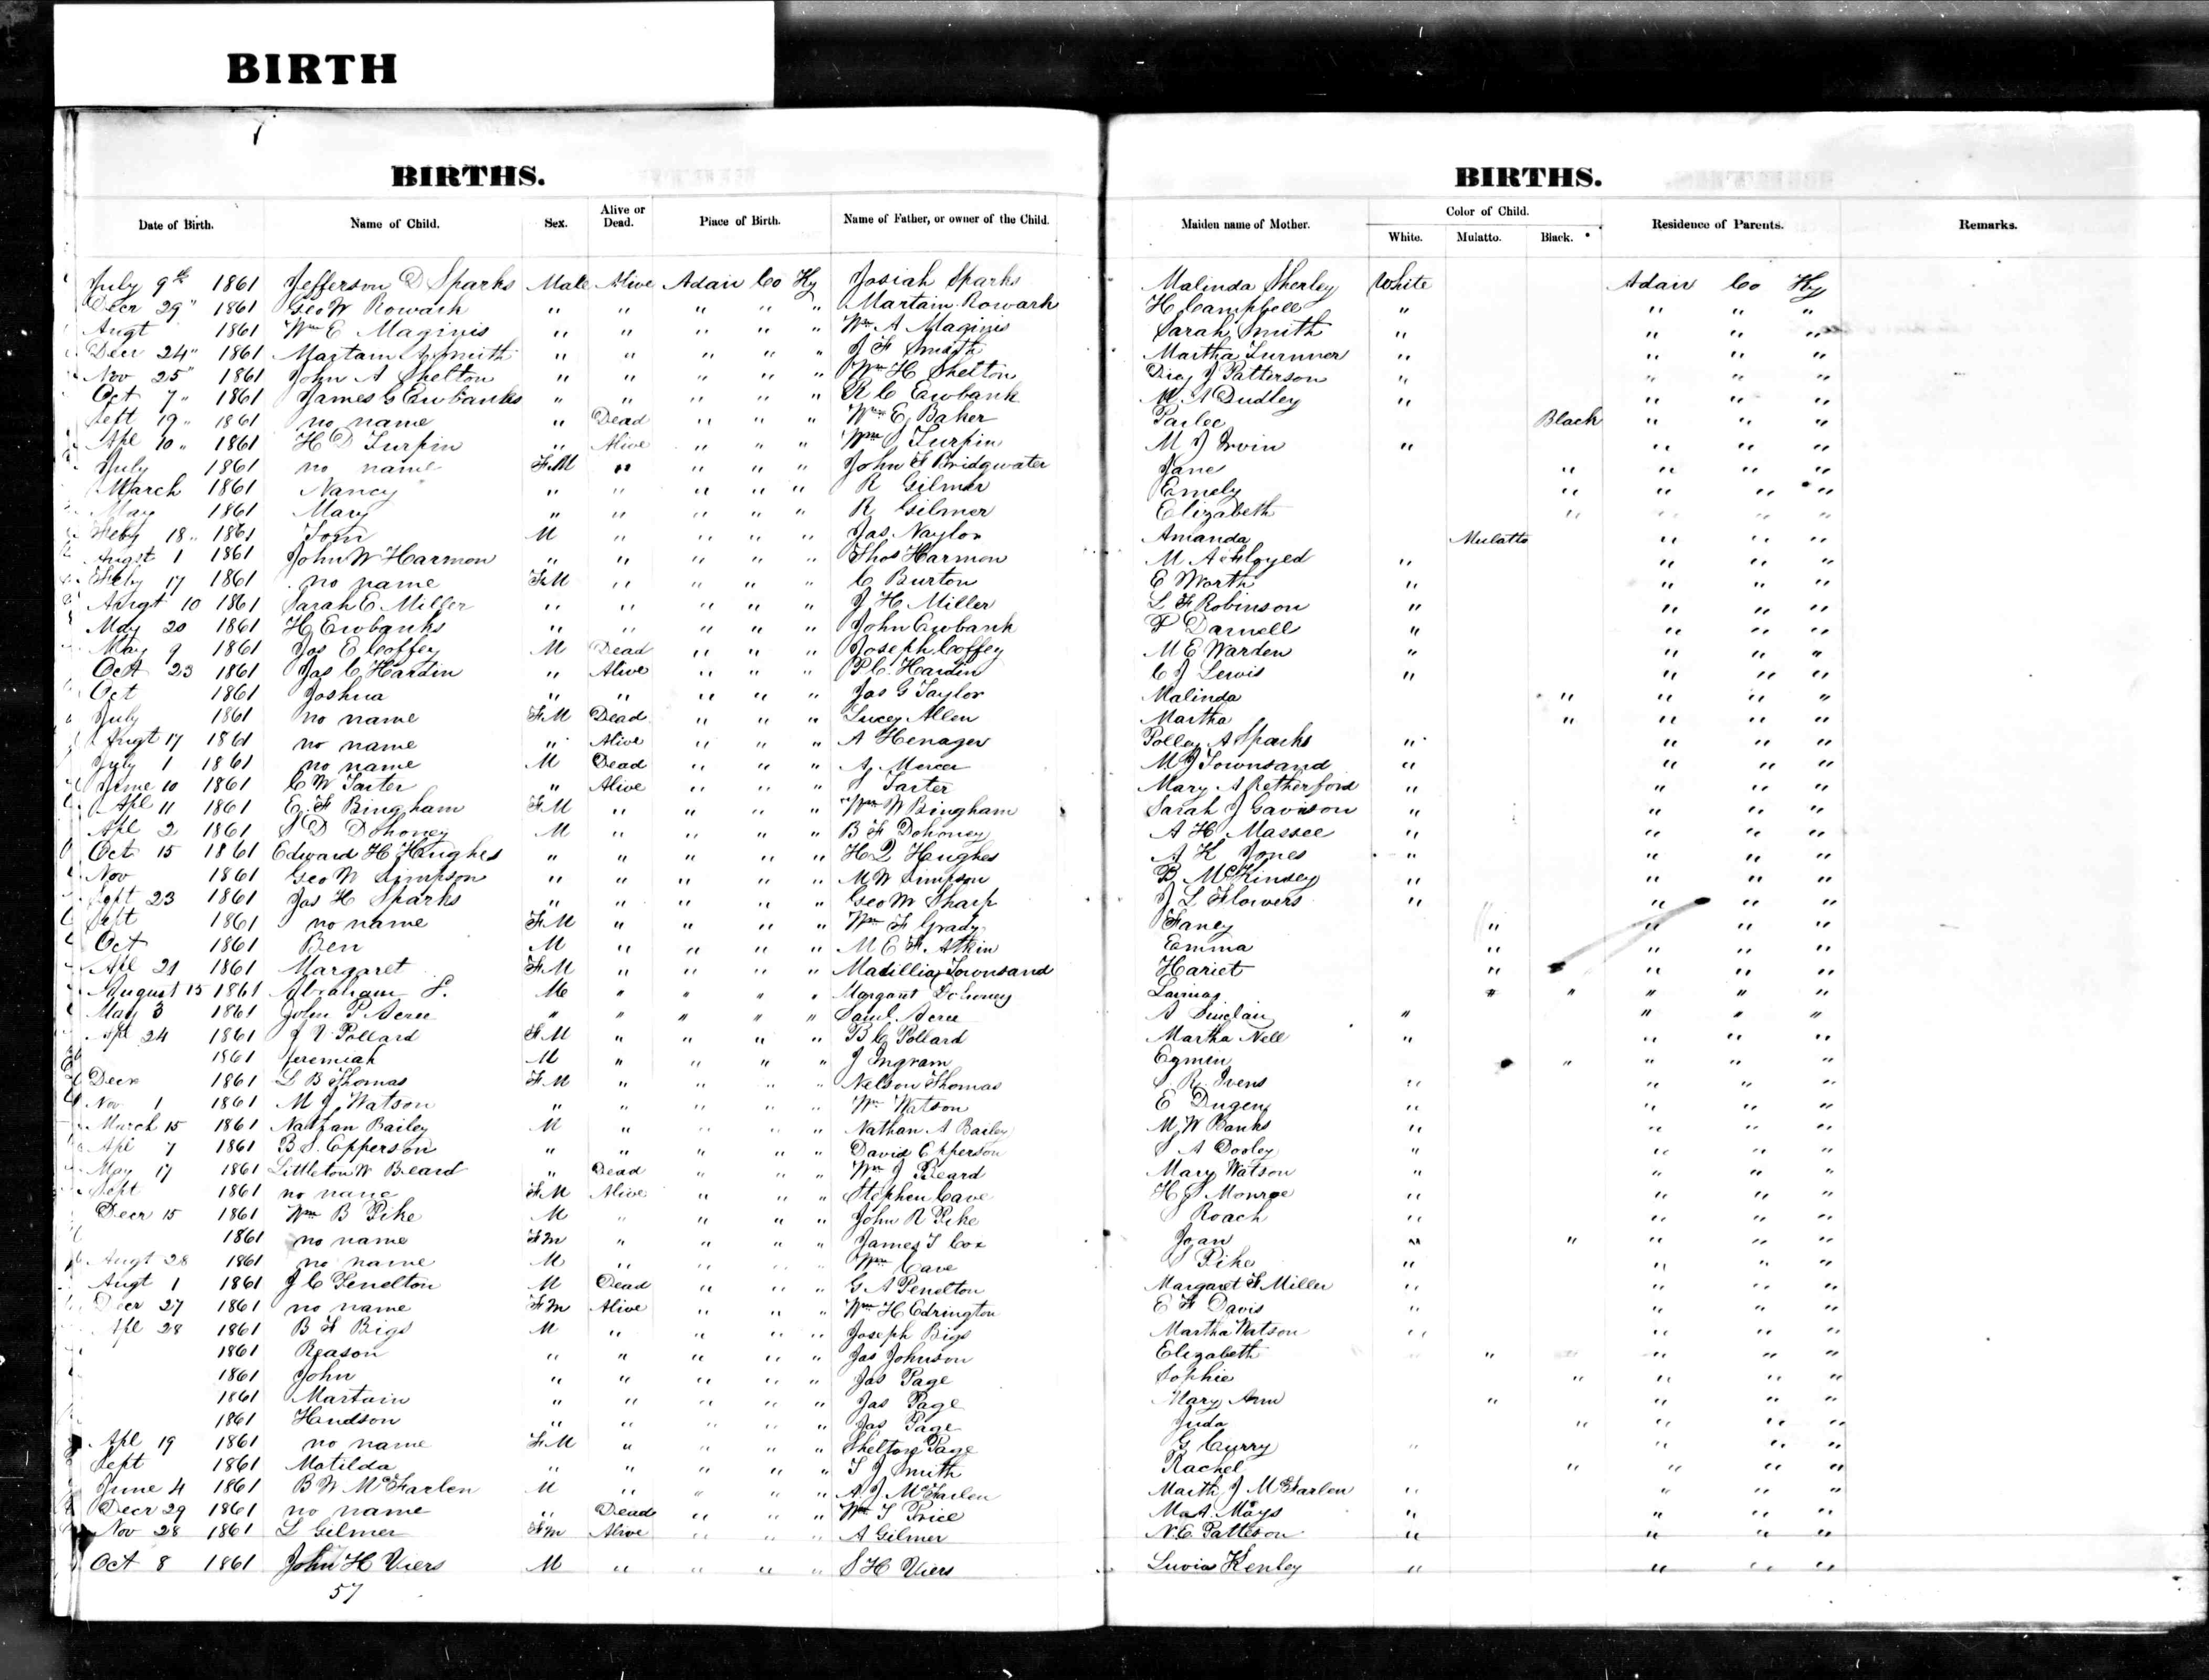 BIRTH
BIRTHS.
Date of Birth. Name of Child. Sex. Alive or Dead. Place of Birth. Name of Father, or owner of the Child.
BIRTHS.
Maiden name of Mother. Color of Child. White. Mulatto. Black. Residence of Parents. Remarks.
July 9th 1861 Jefferson D Sparks Male Alive Adair Co Ky Josiah Sparks Malinda Sherley White Adair Co Ky
Decr 29" 1861 Geo W Rowark " " " " " Martain Rowark H Campbell " " " "
Augt 1861 Wm E Maginis " " " " " Wm A Maginis Sarah Smith " " " "
Decr 24" 1861 Martain A Smith " " " " " J F Smith Martha Turnner " " " "
Nov 25" 1861 John A Shelton " " " " " Wm H Shelton J Patterson " " " "
Oct 7" 1861 James G Ewbanks " " " " " R C Ewbank M A Dudley " " " "
Sept 19" 1861 no name " Dead " " " Wm E Baker Black " " "
Apl 10" 1861 H D Turpin " Alive " " " Wm S Turpin M J Irvin " " " "
July 1861 no name F.M " " " " John F Bridgwater Jane " " " "
March 1861 Nancy " " " " " R Gilmer Emely " " " "
May 1861 Mary " " " " " R Gilmer Elizabeth " " " "
Feby 18" 1861 Tom M " " " " Jas Naylor Amanda Mulatto " " "
Augst 1 1861 John W Harmon " " " " " Thos Harmon M A " " " "
Feby 17 1861 no name F.M " " " " C Burton E Worth " " " "
Augt 10 1861 Sarah E Miller " " " " " J H Miller L F Robinson " " " "
May 20 1861 H Ewbanks " " " " " John Ewbank F Darnell " " " "
May 9 1861 Jas E Coffey M Dead " " " Joseph Coffey M E Warden " " " "
Oct 23 1861 Jas C Hardin " Alive " " " P C Hardin C J Lewis " " " "
Oct 1861 Joshua " " " " " Jas G Taylor Malinda " " " "
July 1861 no name F.M Dead " " " Lucey Allen Martha " " " "
Augt 17 1861 no name " Alive " " " A Henager Polley A Sparks " " " "
July 1 1861 no name M Dead " " " A Mercer M J Townsand " " " "
June 10 1861 C W Tarter " Alive " " " Tarter Mary A Retherford " " " "
Apl 11 1861 E F Bingham F.M " " " " Wm W Bingham Sarah J Gavison " " " "
Apl 2 1861 S D Dohoney M " " " " B F Dohoney A H Massee " " " "
Oct 15 1861 Edward H Hughes " " " " " H Q Hughes A K Jones " " " "
Nov 1861 Geo W Simpson " " " " " M W Simpson B McKinsey " " " "
Sept 23 1861 Jas H Sparks " " " " " Geo W Sharp J L Flowers " " " "
Sept 1861 no name F.M " " " " Wm F Grady Faney " " " "
Oct 1861 Ben M " " " " M E F Atkin Emma " " " "
Apl 21 1861 Margaret F.M " " " " Madillia Townsand Hariet " " " "
August 15 1861 Abraham S. M " " " " Margaret Dohoney " " " " "
May 3 1861 John P Acree " " " " " Saml. Acree A Sinclair " " " "
Apl 24 1861 J V Pollard F.M " " " " B C Pollard Martha Nell " " " "
1861 Jeremiah M " " " " J Ingram " " " "
Decr 1861 L B Thomas F.M " " " " Nelson Thomas S. R. Ivens " " " "
Nov 1 1861 M J Watson " " " " " Wm Watson E Dugen " " " "
March 15 1861 Nathan Bailey M " " " " Nathan A Bailey M W Banks " " " "
Apl 7 1861 B S. Epperson " " " " " David Epperson S A Dooley " " " "
May 17 1861 Littleton W Beard " Dead " " " Wm J Beard Mary Watson " " " "
Sept 1861 no name F.M Alive " " " Stephen Cave H S Monroe " " " "
Decr 15 1861 Wm B Pike M " " " " John R Pike S Roach " " " "
1861 no name F.M " " " " James T Cox Joan " " " "
Augt 28 1861 no name M " " " " Wm Cave S Pike " " " "
Augt 1 1861 J C Penelton M Dead " " " G A Penelton Margaret F Miller " " " "
Decr 27 1861 no name F.M Alive " " " Wm H Edrington E F Davis " " " "
Apl 28 1861 B F Bigs M " " " " Joseph Bigs Martha Watson " " " "
1861 Reason " " " " " Jas Johnson Elizabeth " " " "
1861 John " " " " " Jas Page Sophie " " " "
1861 Martain " " " " " Jas Page Mary Ann " " " "
1861 Hudson " " " " " Jas Page Juda " " " "
Apl 19 1861 no name F.M " " " " Shelton Page G Curry " " " "
Sept 1861 Matilda " " " " " T J Smith Rachel " " " "
June 4 1861 B W McFarlen M " " " " A J McFarlen Marth J McFarlen " " " "
Decr 29 1861 no name " Dead " " " Wm T Price M A Mays " " " "
Nov 28 1861 L Gilmer F.M Alive " " " A Gilmer N. E. Patteson " " " "
Oct 8 1861 John H Viers M " " " " S H Viers Luvia Kenley " " " "
57